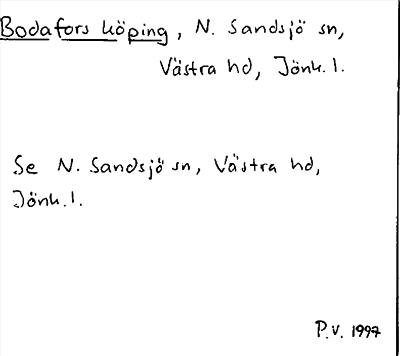 Bodafors köping, N. Sandsjö sn,
Västra hd, Jönk. l.
Se N. Sandsjö sn, Västra hd,
Jönk. l.
P.V. 1997